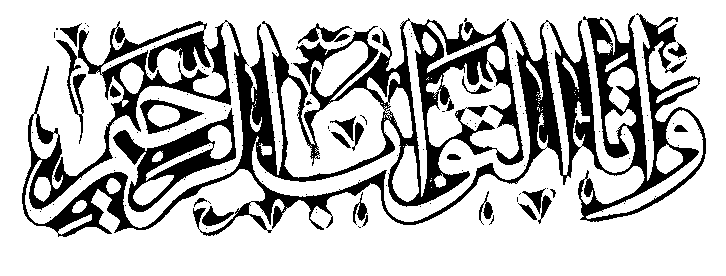 وَأَنَا التَّوَّابُ الرَّحِيمُ